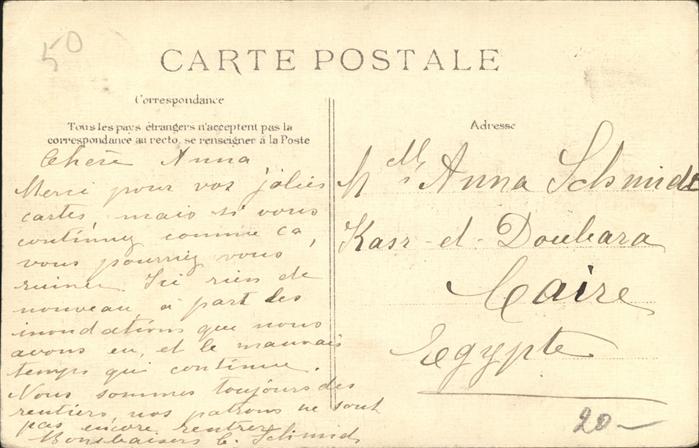 50
CARTE POSTALE
Correspondance
Tous les pays étrangers n'acceptent pas la
correspondance au recto, se renseigner à la Poste
Chère Anna
Merci pour vos jolies
cartes, mais si vous
continuez comme ca
vous pourriez vous
ruiner. Ici rien de
nouveau, à part les
inondations que nous
avons eu, et le mauvais
temps qui continue.
Nous sommes toujours des
rentiers, nos patrons ne sont
pas encore rentrés
Bonsbaisers C. Schmidt
Adresse
Mlle Anna Schmidt
Kasr-el-Doubara
Caire
Egypte
20-